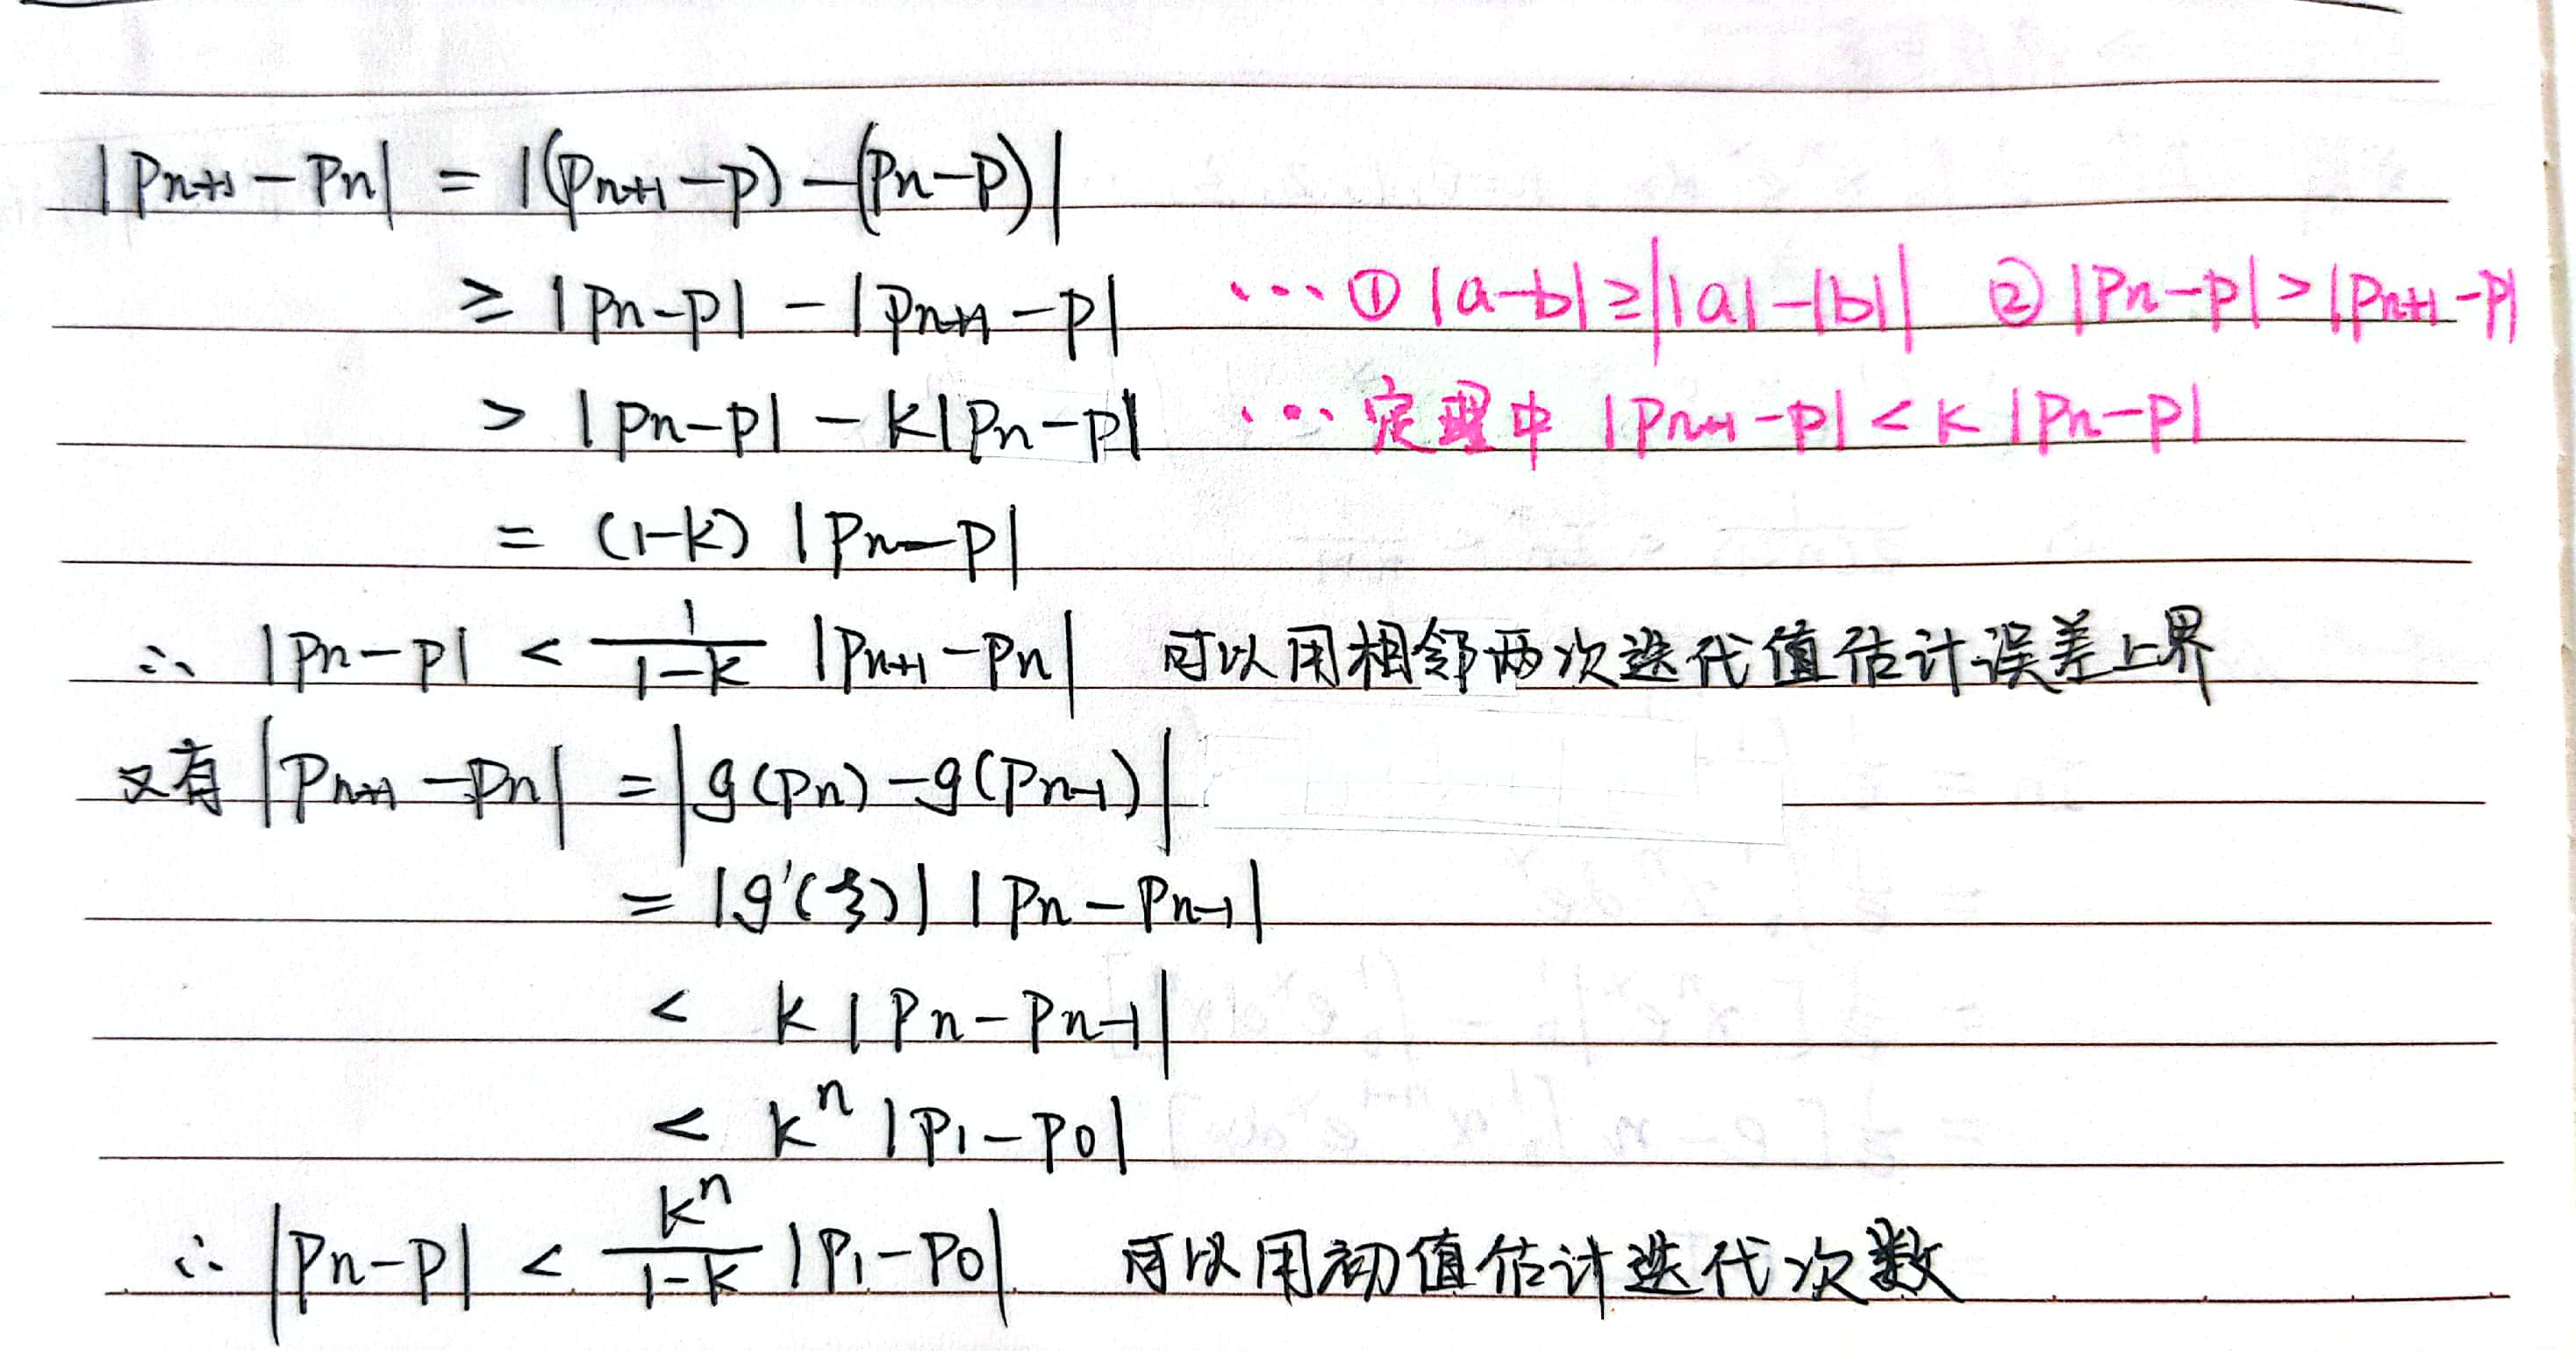 |Pn+1 - Pn| = |(Pn+1 - P) - (Pn - P)|
≥ |Pn - P| - |Pn+1 - P| ... ① |a-b| ≥ ||a| - |b|| ② |Pn - P| > |Pn+1 - P|
> |Pn - P| - k|Pn - P| ... 定理中 |Pn+1 - P| < k |Pn - P|
= (1-k) |Pn - P|
∴ |Pn - P| < 1/(1-k) |Pn+1 - Pn| 可以用相邻两次迭代值估计误差上界
又有 |Pn+1 - Pn| = |g(Pn) - g(Pn-1)|
= |g'(ξ)| |Pn - Pn-1|
< k |Pn - Pn-1|
< k^n |P1 - P0|
∴ |Pn - P| < k^n/(1-k) |P1 - P0| 可以用初值估计迭代次数